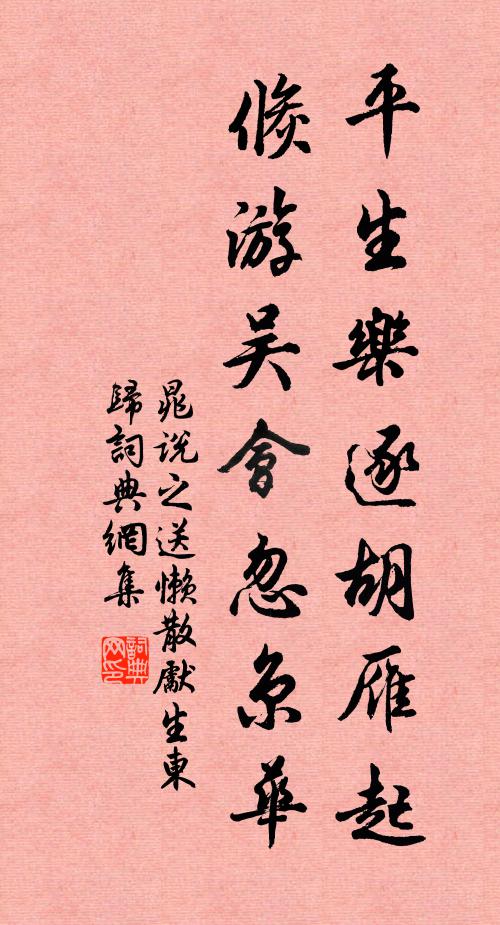 平生樂逐胡雁起
倏游吴會忽京華
晁說之送懒散獻生東
歸詞典網集
詞典网印